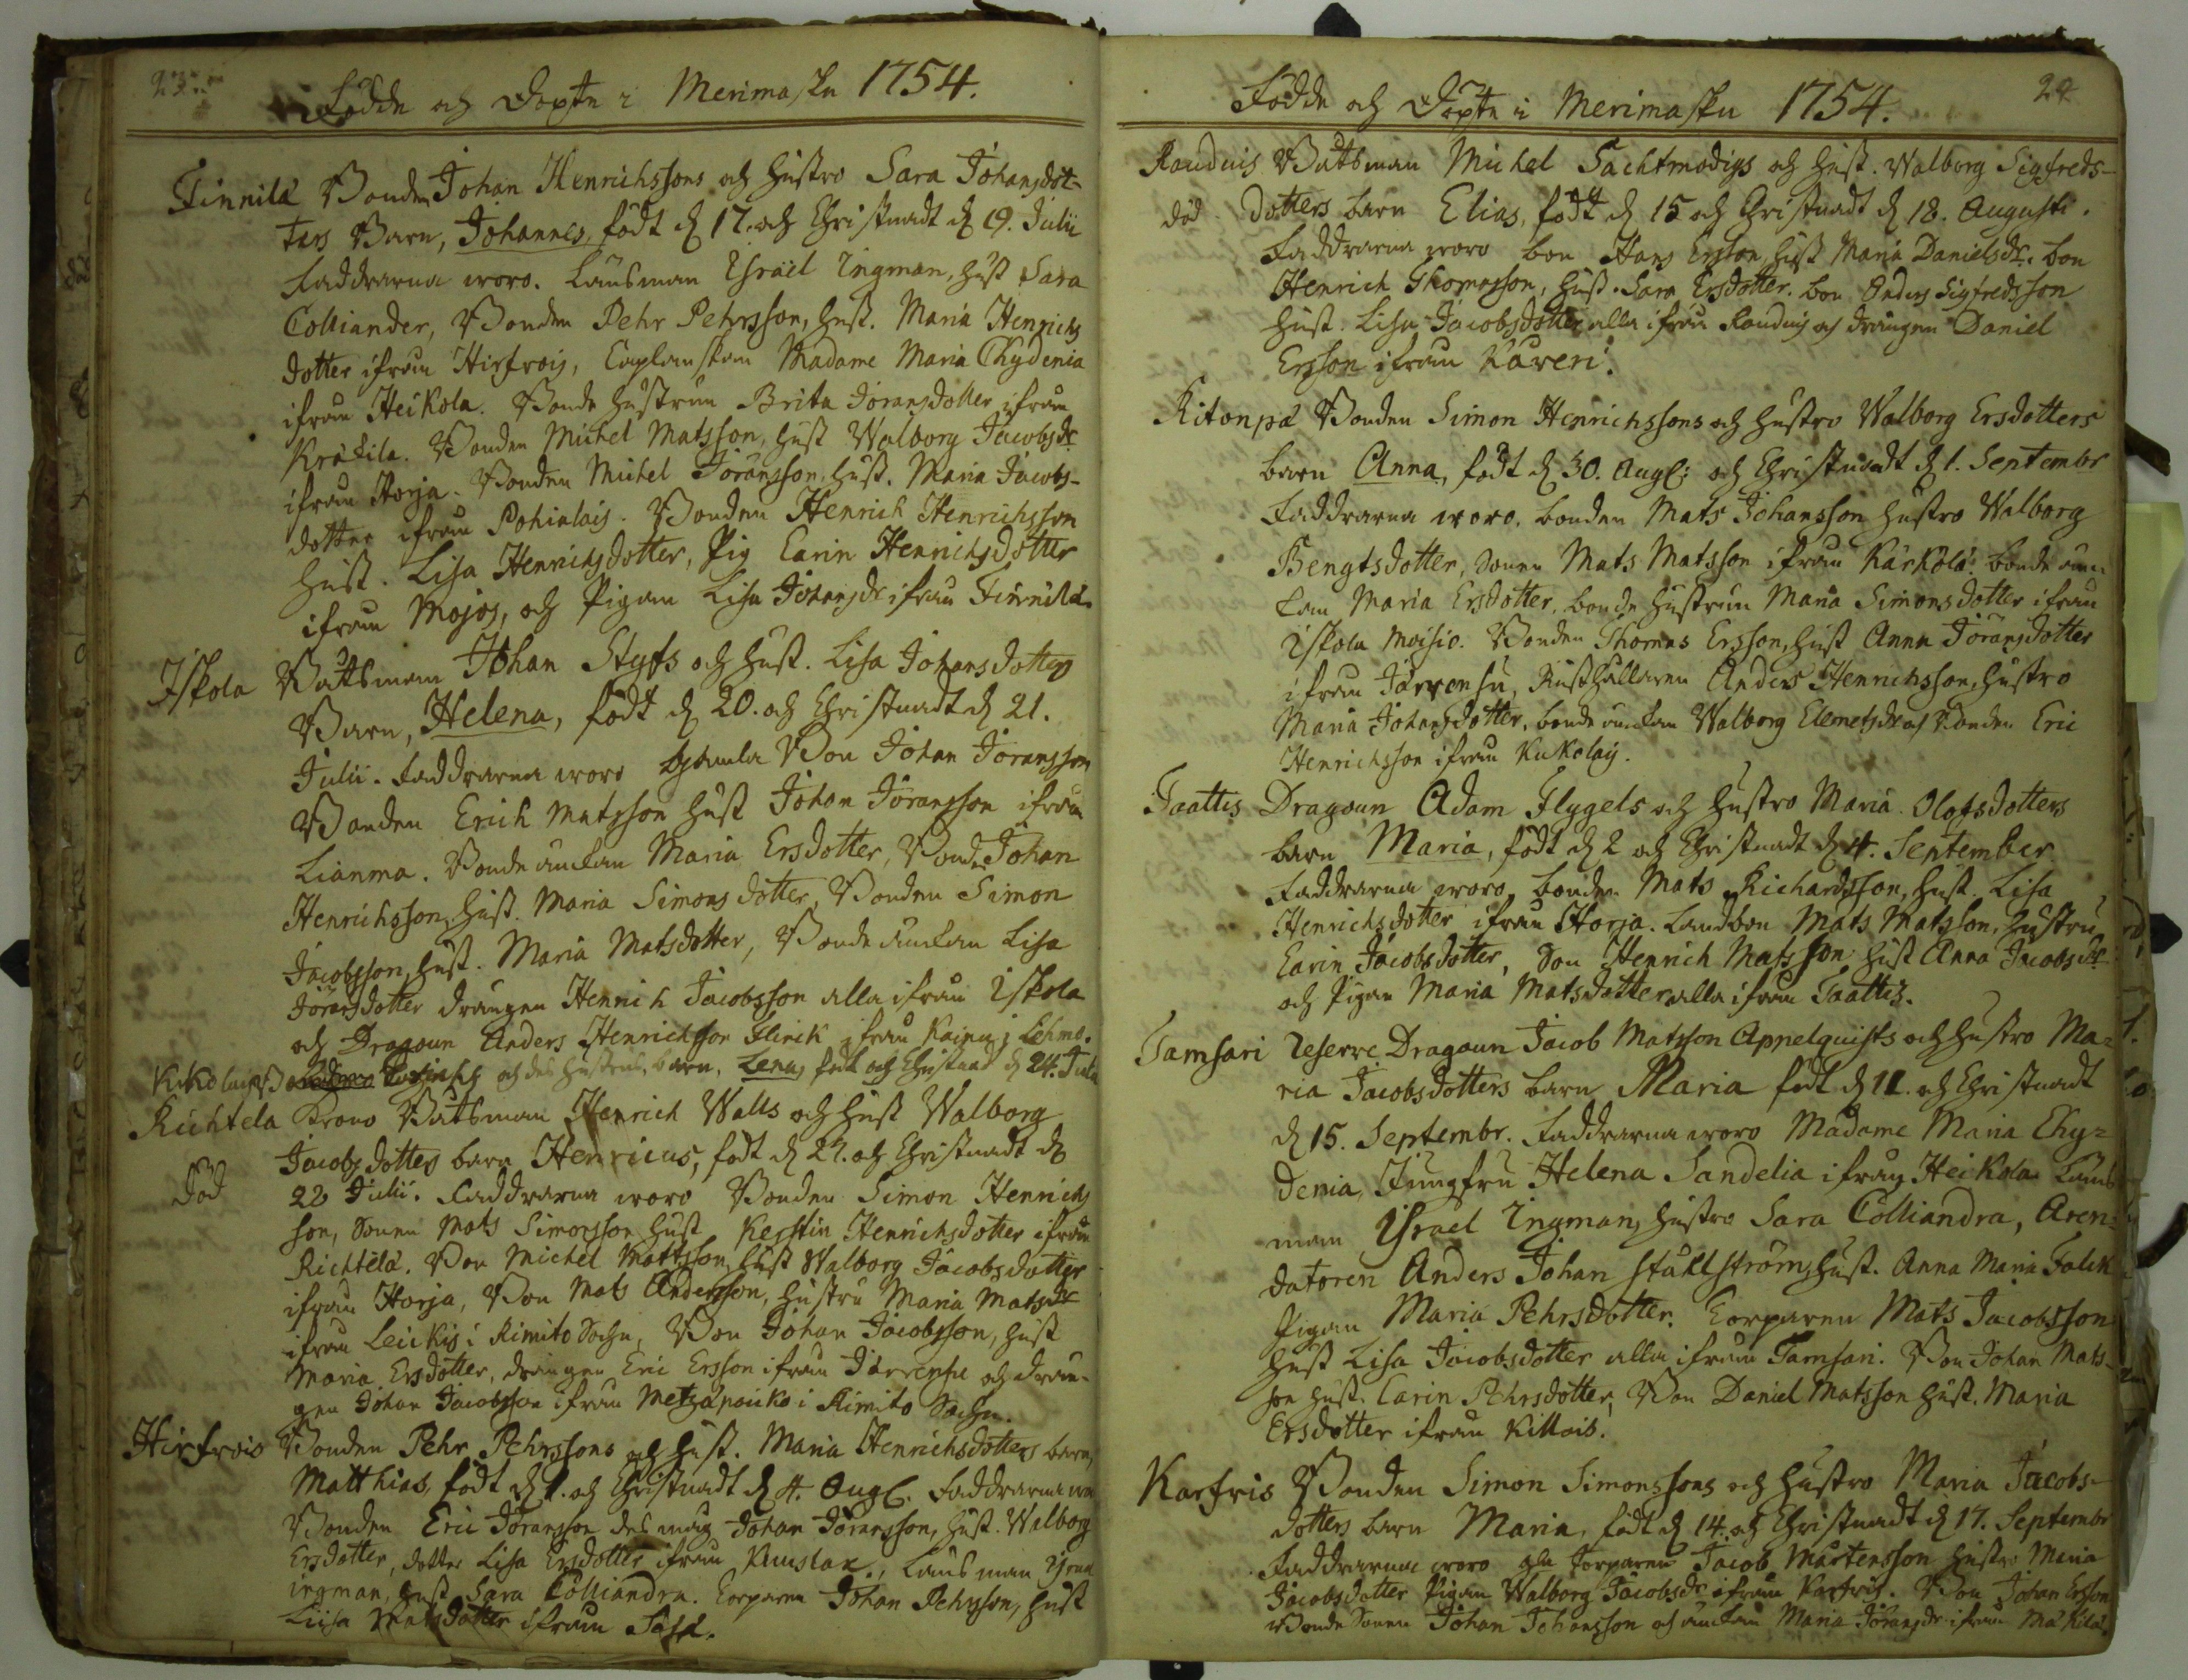 23
Födde och Döpte i Merimasku 1754.
Finnilä Bonden Johan Henrichssons och Hustro Sara Johansdot-
ters Barn, Johannes, född d 17. och Christnadt d 19. Julii
Faddrarna woro. Länsman Esraël Ingman, Hust Sara
Colliander, Bonden Pehr Pehrsson, Hust. Maria Henrichs
dotter ifrån Hirfrois, Caplanskan Madame Maria Chydenia
ifrån Heikola. Bonde Hustrun Brita Joransdotter ifrån
Kräkila. Bonden Michel Matsson, Hust Walborg Jacobsdr
ifrån Horja. Bonden Michel Jöransson, Hust. Maria Jacobs-
dotter ifrån Pohialais. Bonden Henrich Henrichsson
Hust. Lisa Henrichsdotter, Pig Carin Henrichsdotter
ifrån Mojos, och Pigan Lisa Johansdr ifrån Finnilä.
Iskola Båtsman Johan Styfs och Hust. Lisa Johansdotters
Barn, Helena, födt d 20. och Christnadt d 21.
Julii. Faddrarna woro Gamla Bon Johan Joransson
Bonden Erich Matsson Hust Johan Jöransson ifrån
Lianma. Bonde änckan Maria Ersdotter, Bond Johan
Henrichsson, Hust. Maria Simonsdotter, Bonden Simon
Jacobsson, Hust. Maria Matsdotter, Bonde änckan Lisa
Joransdotter drängen Henrich Jacobsson alla ifrån Iskola
och Dragoun Anders Henrichsson Flinck ifrån Kainu i Lehmo.
Kukolais och des Hustrus barn, Lena, född och Christnad d 24. Julii
Richtela Krono Båtsman Henrich Walls och Hust Walborg
Jacobsdotters barn Henricus, födt d 21. och Christnadt d
Död 22 Julii. Faddrarna woro Bonden Simon Henrichs
son, Sonen Mats Simonsson Hust Kerstin Henrichsdotter ifrån
Richtelä. Bon Michel Mattsson, Hust Walborg Jacobsdotter
ifrån Horja, Bon Mats Andersson, Hustru Maria Matsdr
ifrån Leickis i Rimito Sochn, Bon Johan Jacobsson, Hust
Maria Ersdotter, drängen Eric Ersson ifrån Järvensu och drän-
gen Johan Jacobsson ifrån Metzänouko i Rimito Sochn.
Hirfrois Bonden Pehr Pehrssons och Hust. Maria Henrichsdotters barn,
Matthias, födt d 1. och Christnadt d 4. Aug. Faddrarna wo
Bonden Eric Jöransson des måg Johan Jöransson, Hust. Walborg
Ersdotter, dotter Lisa Ersdotter ifrån Kuustax, Länsman Israel
Ingman, Hust Sara Colliandra. Torparen Johan Pehrsson, Hust
Liisa Matsdotter ifrån
24
Födde och Döpte i Merimasku 1754.
Rauduis Båtsman Michel Sachtmodigs och Hust. Walborg Sigfreds-
död dotters barn Elias, födt d 15 och Christnadt d 18. Augusti.
Faddrarna woro bon Hans Ersson, Hust Maria Danielsdr. bon
Henrich Thomasson, Hust. Sara Ersdotter. bon Anders Sigfredsson
Hust. Lisa Jacobsdotter alla ifrån Rauduis och drängen Daniel
Ersson ifrån Kaveri.
Ritonpä Bonden Simon Henrichssons och Hustro Walborg Ersdotters
barn Anna, födt d 30. Aug: och Christnadt d 1. Septembr
Faddrarna woro, bonden Mats Johansson Hustro Walborg
Bengtsdotter, Sonen Mats Matsson ifrån Kärkölä. bonde än-
kan Maria Ersdotter, bonde Hustrun Maria Simonsdotter ifrån
Iskola Moisio. Bonden Thomas Ersson, Hust Anna Jöransdotter
ifrån Järvensu, Rusthållaren Anders Henrichsson, Hustro
Maria Johansdotter, bonde änckan Walborg Clemetsdr och Bonden Eric
Henrichsson ifrån Kukolais.
Taattis Dragoun Adam Flygels och Hustro Maria Olofsdotters
barn Maria, födt d 2 och Christnadt d 4. September
Faddrarna woro, bonden Mats Richardsson, Hust. Lisa
Henrichsdotter ifrån Horja. Landbon Mats Matsson, Hustru
Carin Jacobsdotter, Son Henrich Matsson Hust Anna Jacobsdr
och Pigan Maria Matsdotter alla ifrån Taattis.
Tamsari Reserve Dragoun Jacob Matsson Appelquists och Hustro Ma-
ria Jacobsdotters barn Maria född d 11. och Christnadt
d 15. Septembr. Faddrarna woro Madame Maria Chy-
denia, Jungfru Helena Sandelia ifrån Heikola Läns
man Israel Ingman, Hustro Sara Colliandra, Aren-
datoren Anders Johan Stählström, Hust. Anna Maria Falck
Pigan Maria Pehrsdotter. Torparen Mats Jacobsson
Hust Lisa Jacobsdotter alla ifrån Tamsari. Bon Johan Mats-
son Hust. Carin Pehrsdotter, Bon Daniel Matsson Hust. Maria
Ersdotter ifrån Killais.
Karfris Bonden Simon Simonssons och Hustro Maria Jacobs-
dotters barn Maria, födt d 14. och Christnadt d 17. Septembr
Faddrarna woro gla Torparen Jacob Mårtensson Hustro Maria
Jacobsdotter Pigan Walborg Jacobsdr ifrån Karfris. Bon Johan Ersson
Bonde Sonen Johan Johansson och änckan Maria Jöransdr ifrån Mäkilä.